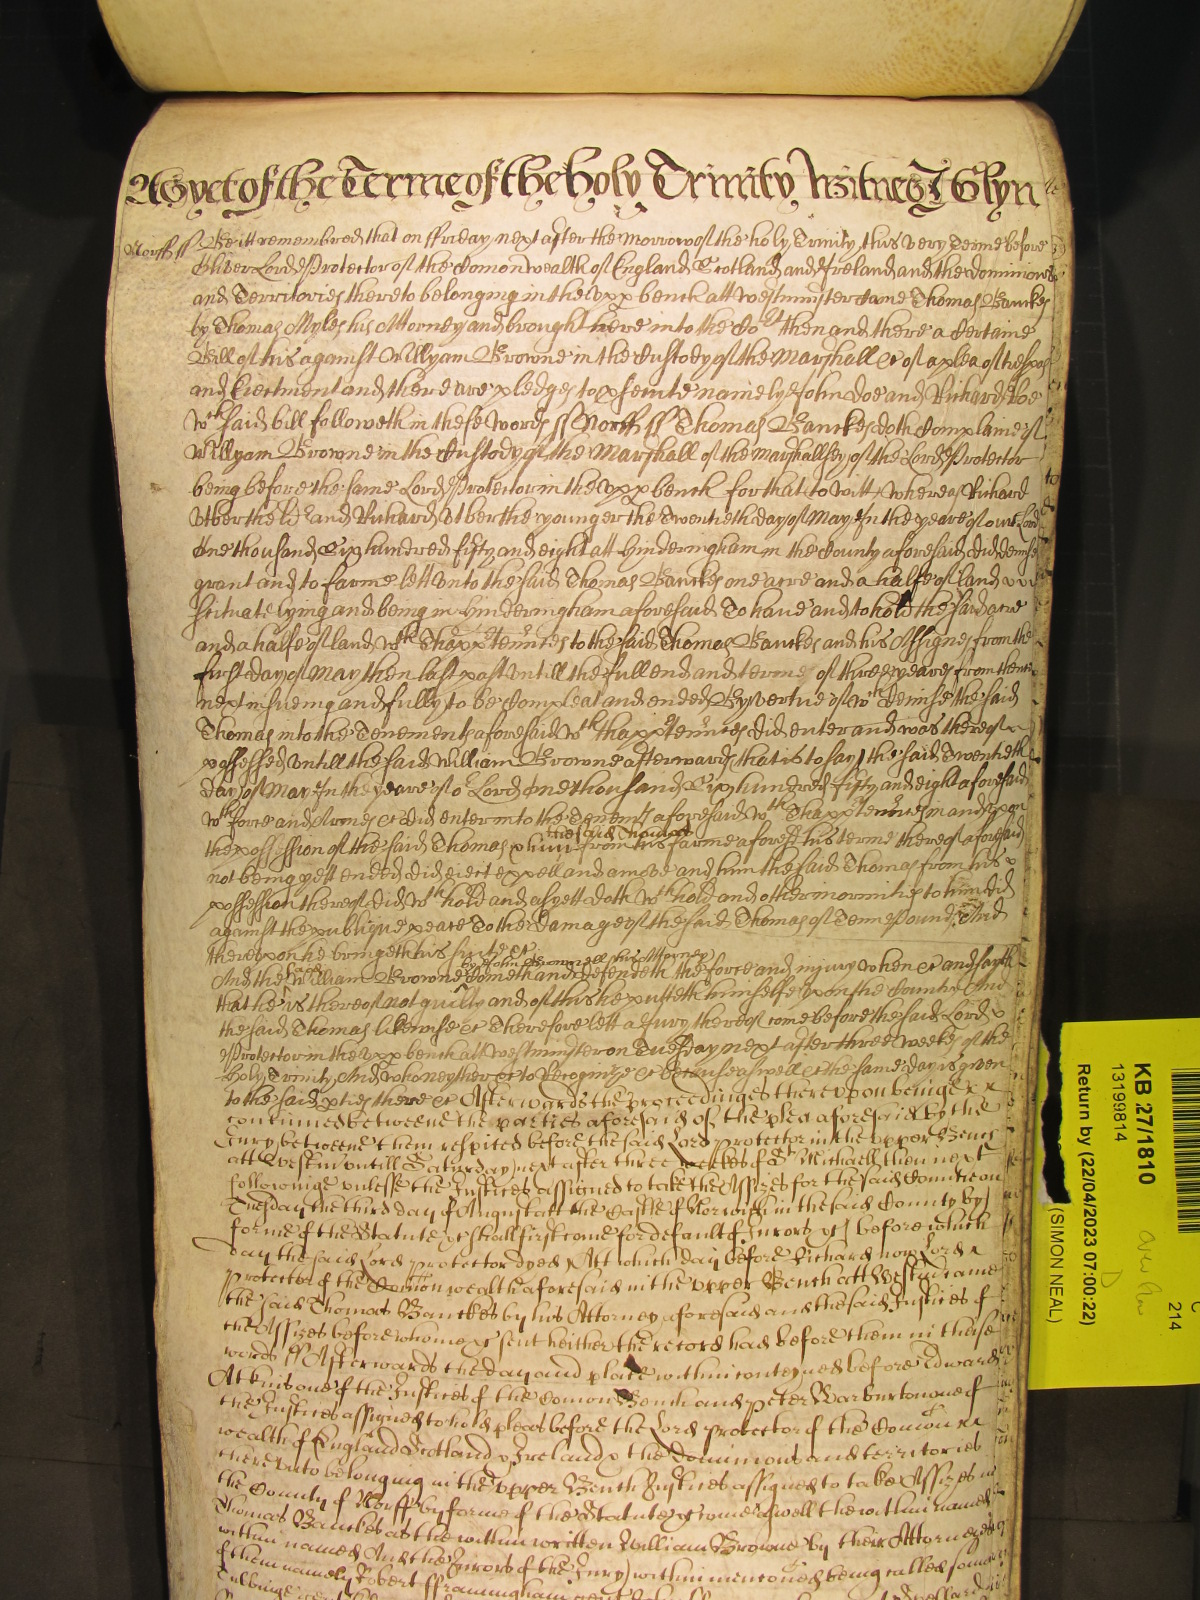 As yet of the Terme of the holy Trinity Witnes J Glyn
Norff ss Be itt remembred that on ffriday next after the morrow of the holy Trinity this very Terme before
Oliver Lord Protector of the Comonwealth of England Scotland and Ireland and the dominions
and Territories thereto belonging in the upp bench att Westminster came Thomas Banckes
by Thomas Myles his Attorney and brought here into the Cort then and there a certaine
Bill of his against Willyam Browne in the Custody of the Marshall &c of a plea of trespas
and Eiectment and there are pledges to psecute namely John Doe and Richard Roe
wch said bill followeth in these words ss Norff ss Thomas Banckes doth Complaine of
Willyam Browne in the Custody of the Marshall of the marshallsey of the Lord Protector
being before the same Lord Protector in the upp bench for that to witt whereas Richard
and Richard the younger the Twentieth day of May In the yeare of our Lord
One thousand Six hundred fifty and eight att Hinderingham in the County aforesaid did demise
grant and to farme lett unto the said Thomas Banckes one acre and a halfe of land
scituate lying and being in Hinderingham aforesaid To have and to hold the said acre
and a halfe of land wth Thapptennces to the said Thomas Banckes and his Assignes from the
first day of May then last past untill the full end and terme of three yeares from thence
next insueing and fully to be Compleat and ended By vertue of wch demise the said
Thomas into the Tenements aforesaid wth thapptennces did enter and was thereof
possessed untill the said William Browne afterwards that is to say the said Twentieth
day of May In the yeare of or Lord One thousand Six hundred fifty and eight aforesaid
wth force and Armes &c did enter into the Tenemts aforesaid wth Thapptennces in and upon
the possession of the said Thomas
the said Thomas
from his farme aforesd his terme thereof aforesaid
not being yett ended did eiect expell and amove and him the said Thomas from his
possession thereof did wth hold and as yett doth wth hold and other inormities to him did
against the publique peace To the damage of the said Thomas of Tenne Pounds And
thereupon he bringeth his suite &c
by John his Attorney
And the said William Browne Cometh and defendeth the force and injury when &c and sayth
that he is thereof not guilty and of this he putteth himselfe upon the Country And
the said Thomas likewise &c Therefore lett a Jury thereof come before the said Lord
Protector in the upp bench att Westminster on Tuesday next after three weekes of the
Holy Trinity And who neyther &c to Recognize &c Because aswell &c the same day is given
to the said pties there &c Afterwards the proceedinges thereupon beinge
continued betweene the parties aforesaid of the plea aforesaid by the
Jury betweene them respited before the said Lord Protector in the upper Bench
att Westm untill Saturday next after three weekes of St Michaell then next
followinge unlesse the Justices assigned to take the Assizes for the said Countie on
Tuesday the third day of August att the Castle of Norwich in the said County by
forme of the Statute &c shall first come for default of Jurors &c before which
day the said Lord protector dyed Att which day before Richard now Lord
Protector of the Comonwealth aforesaid in the upper Bench att Westm came
the said Thomas Banckes by his Attorney aforesaid and the said Justices of
the Assizes before whome &c sent heither the record had before them in these
words ss Afterwards the day and place within conteyned before Edward
Atkins one of the Justices of the Comon Bench and Peter Warburton one of
the Justices assigned to hold pleas before the Lord Protector of the Comon
wealth of England Scotland & Ireland & the Dominions and territories
thereunto belonging in the upper Bench Justices assigned to take Assizes in
the County of Norff by forme of the Statute &c come aswell the within named
Thomas Banckes as the within written William Browne by their Attorneyes
within named And the Jurors of the Jury within mentioned being called some
of them namely Robert fframingham
KB 27/1810
13199814
Return by (22/04/2023 07:00:22)
(SIMON NEAL)
214